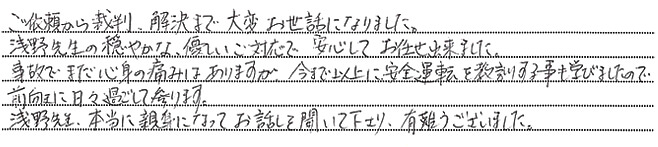 ご依頼から裁判、解決まで大変お世話になりました。
浅野先生の穏やかな、優しいご対応で安心してお任せ出来ました。
事故でまだ心身の痛みはありますが、今まで以上に安全運転を する事も学びましたので
前向きに日々過ごして参ります。
浅野先生、本当に親身になってお話しを聞いて下さり、有難うございました。